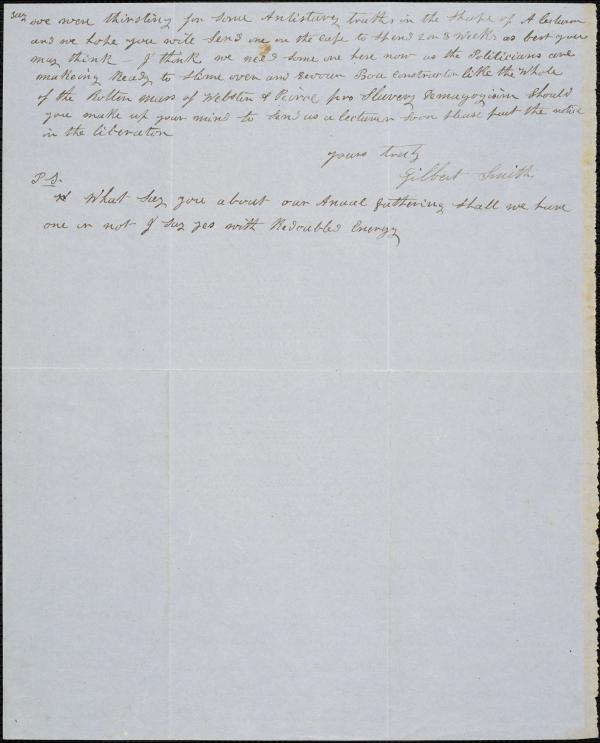 Say we were thirsting for some Antislavery truths in the shape of A lecturer
and we hope you will send one on the Cape to spend 2 or 3 weeks as best you
may think - I think we need some one here now as the Politicians are
makeing Ready to slime over and devour Boa Constrictor like the whole
of the Rotten mass of Webster & Peirce pro Slavery Demagogism Should
you make up your mind to send us a lecturer soon please put the notice
in the liberator
yours truly
Gilbert Smith
P S.
What say you about our Anual gathering shall we have
one or not I say yes with Redoubled Energy